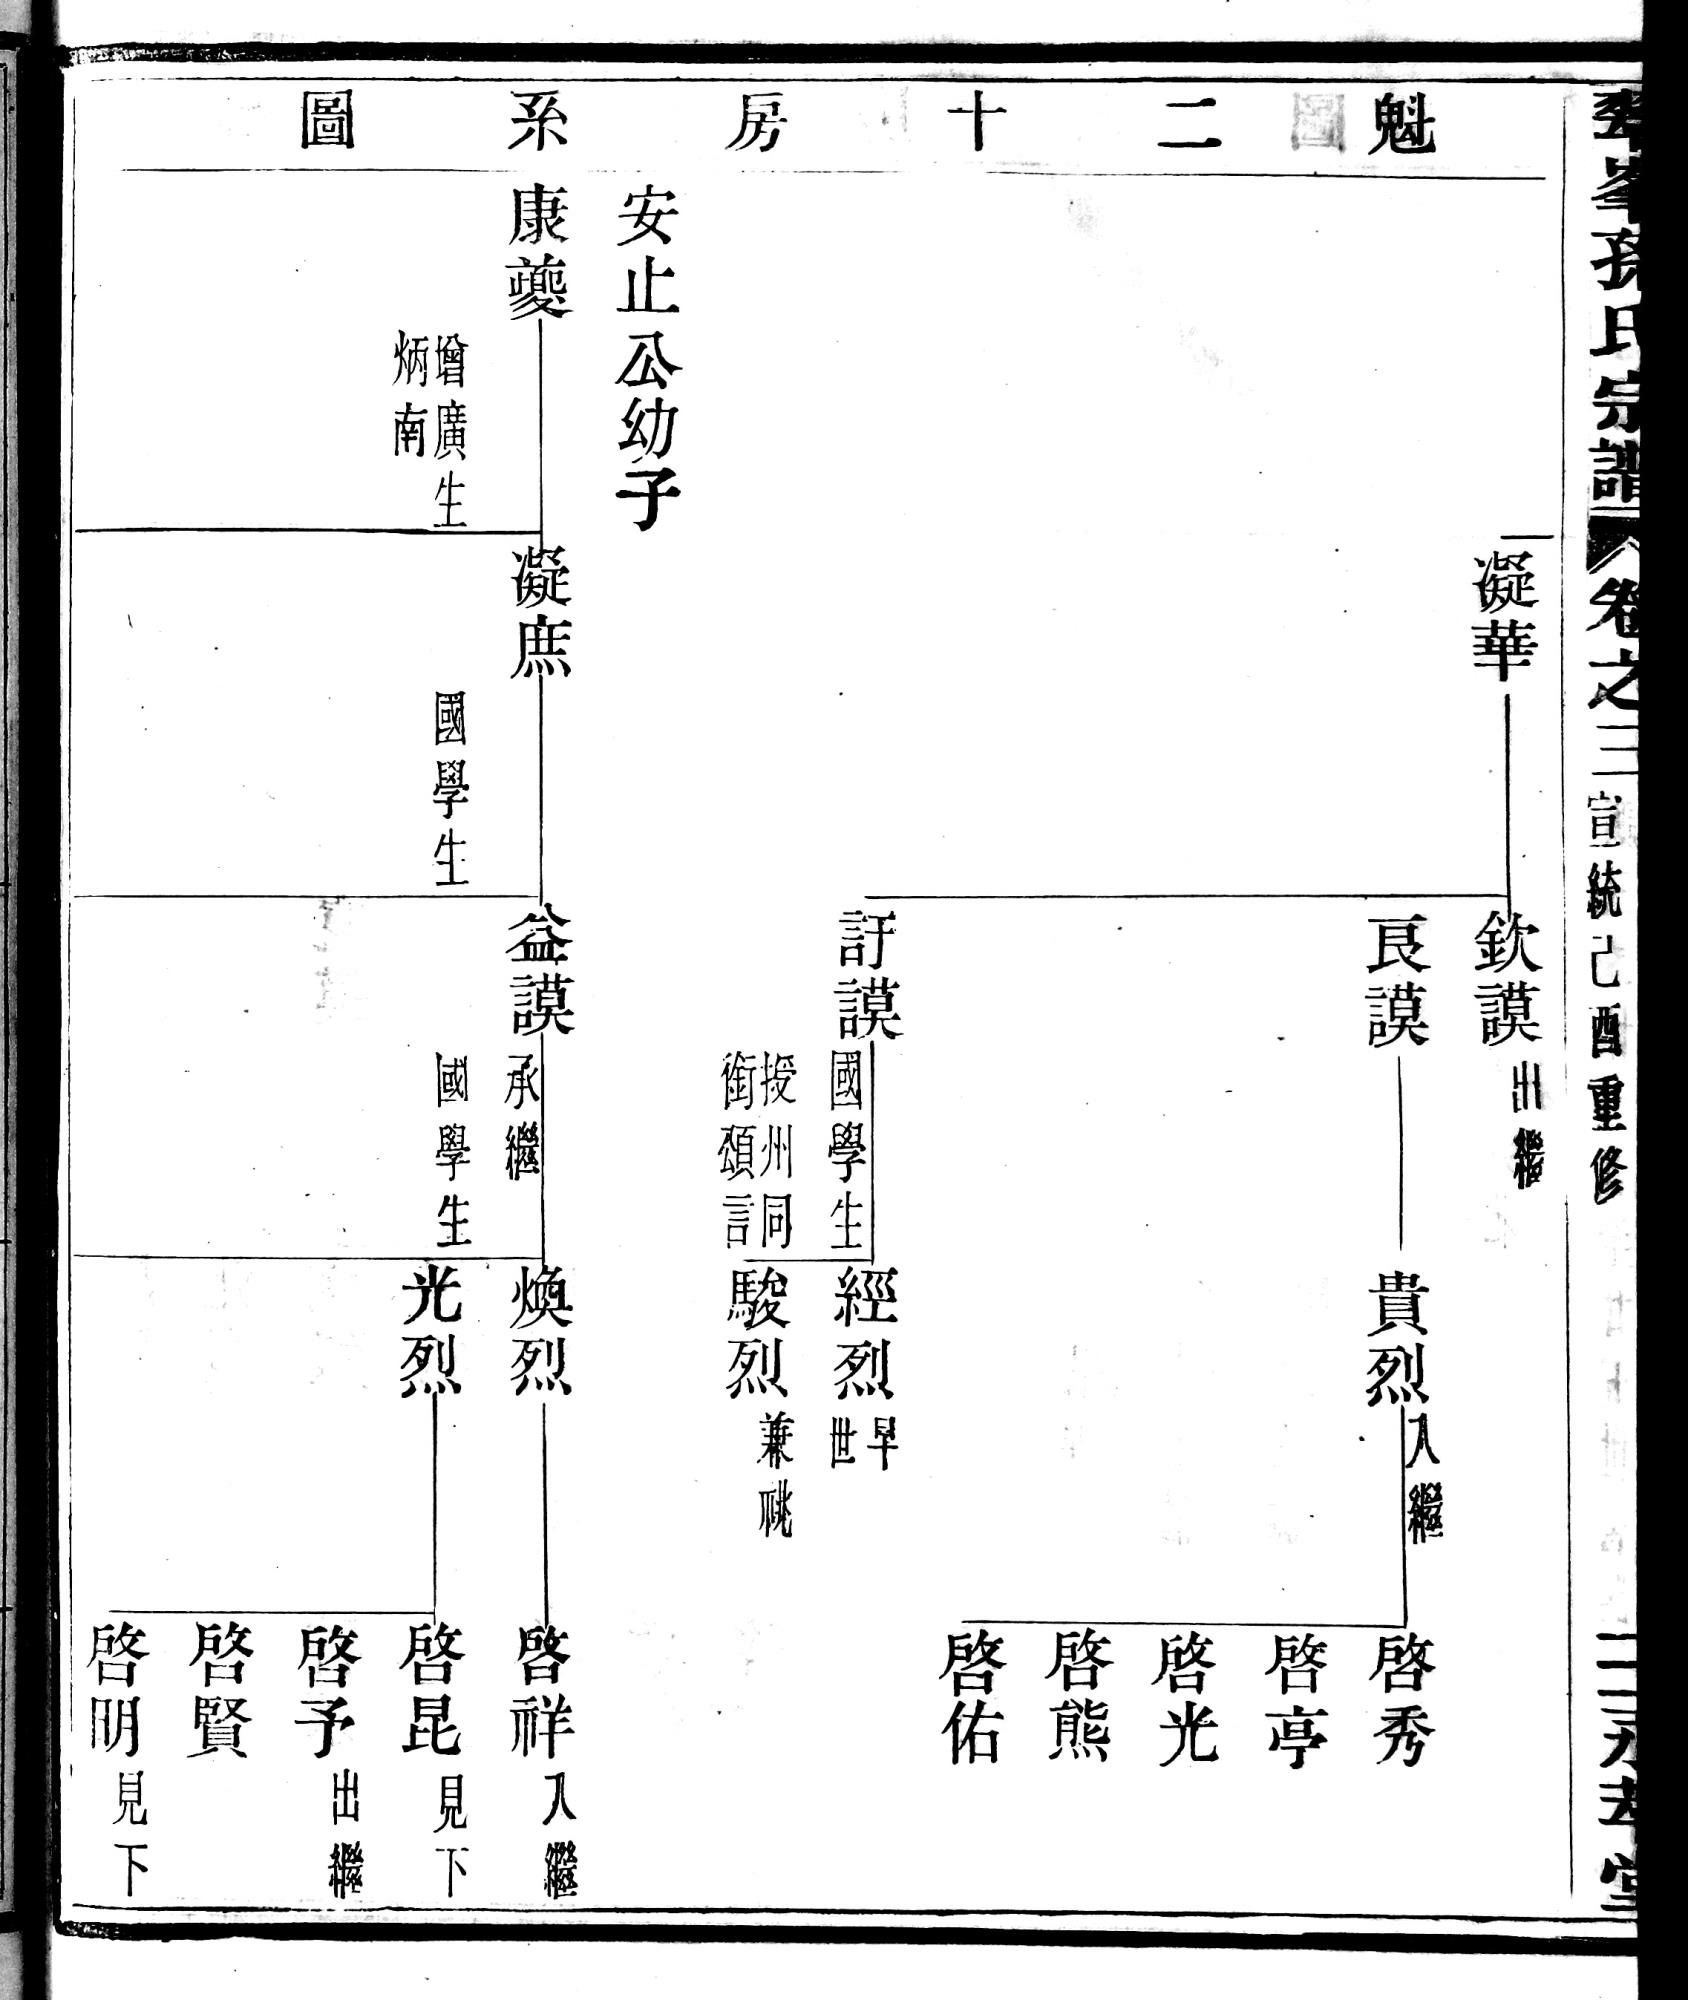 孫氏宗譜 卷之三 宣統己酉重修
魁二十房系圖
凝華
欽謨 出繼
良謨
貴烈 入繼
啓秀
啓亭
啓光
啓熊
啓佑
訏謨 國學生 授州同銜頌言
經烈 早世
駿烈 兼祧
安止公幼子
康夔 增廣生 炳南
凝庶 國學生
益謨 承繼 國學生
煥烈
啓祥 入繼
光烈
啓昆 見下
啓予 出繼
啓賢
啓明 見下